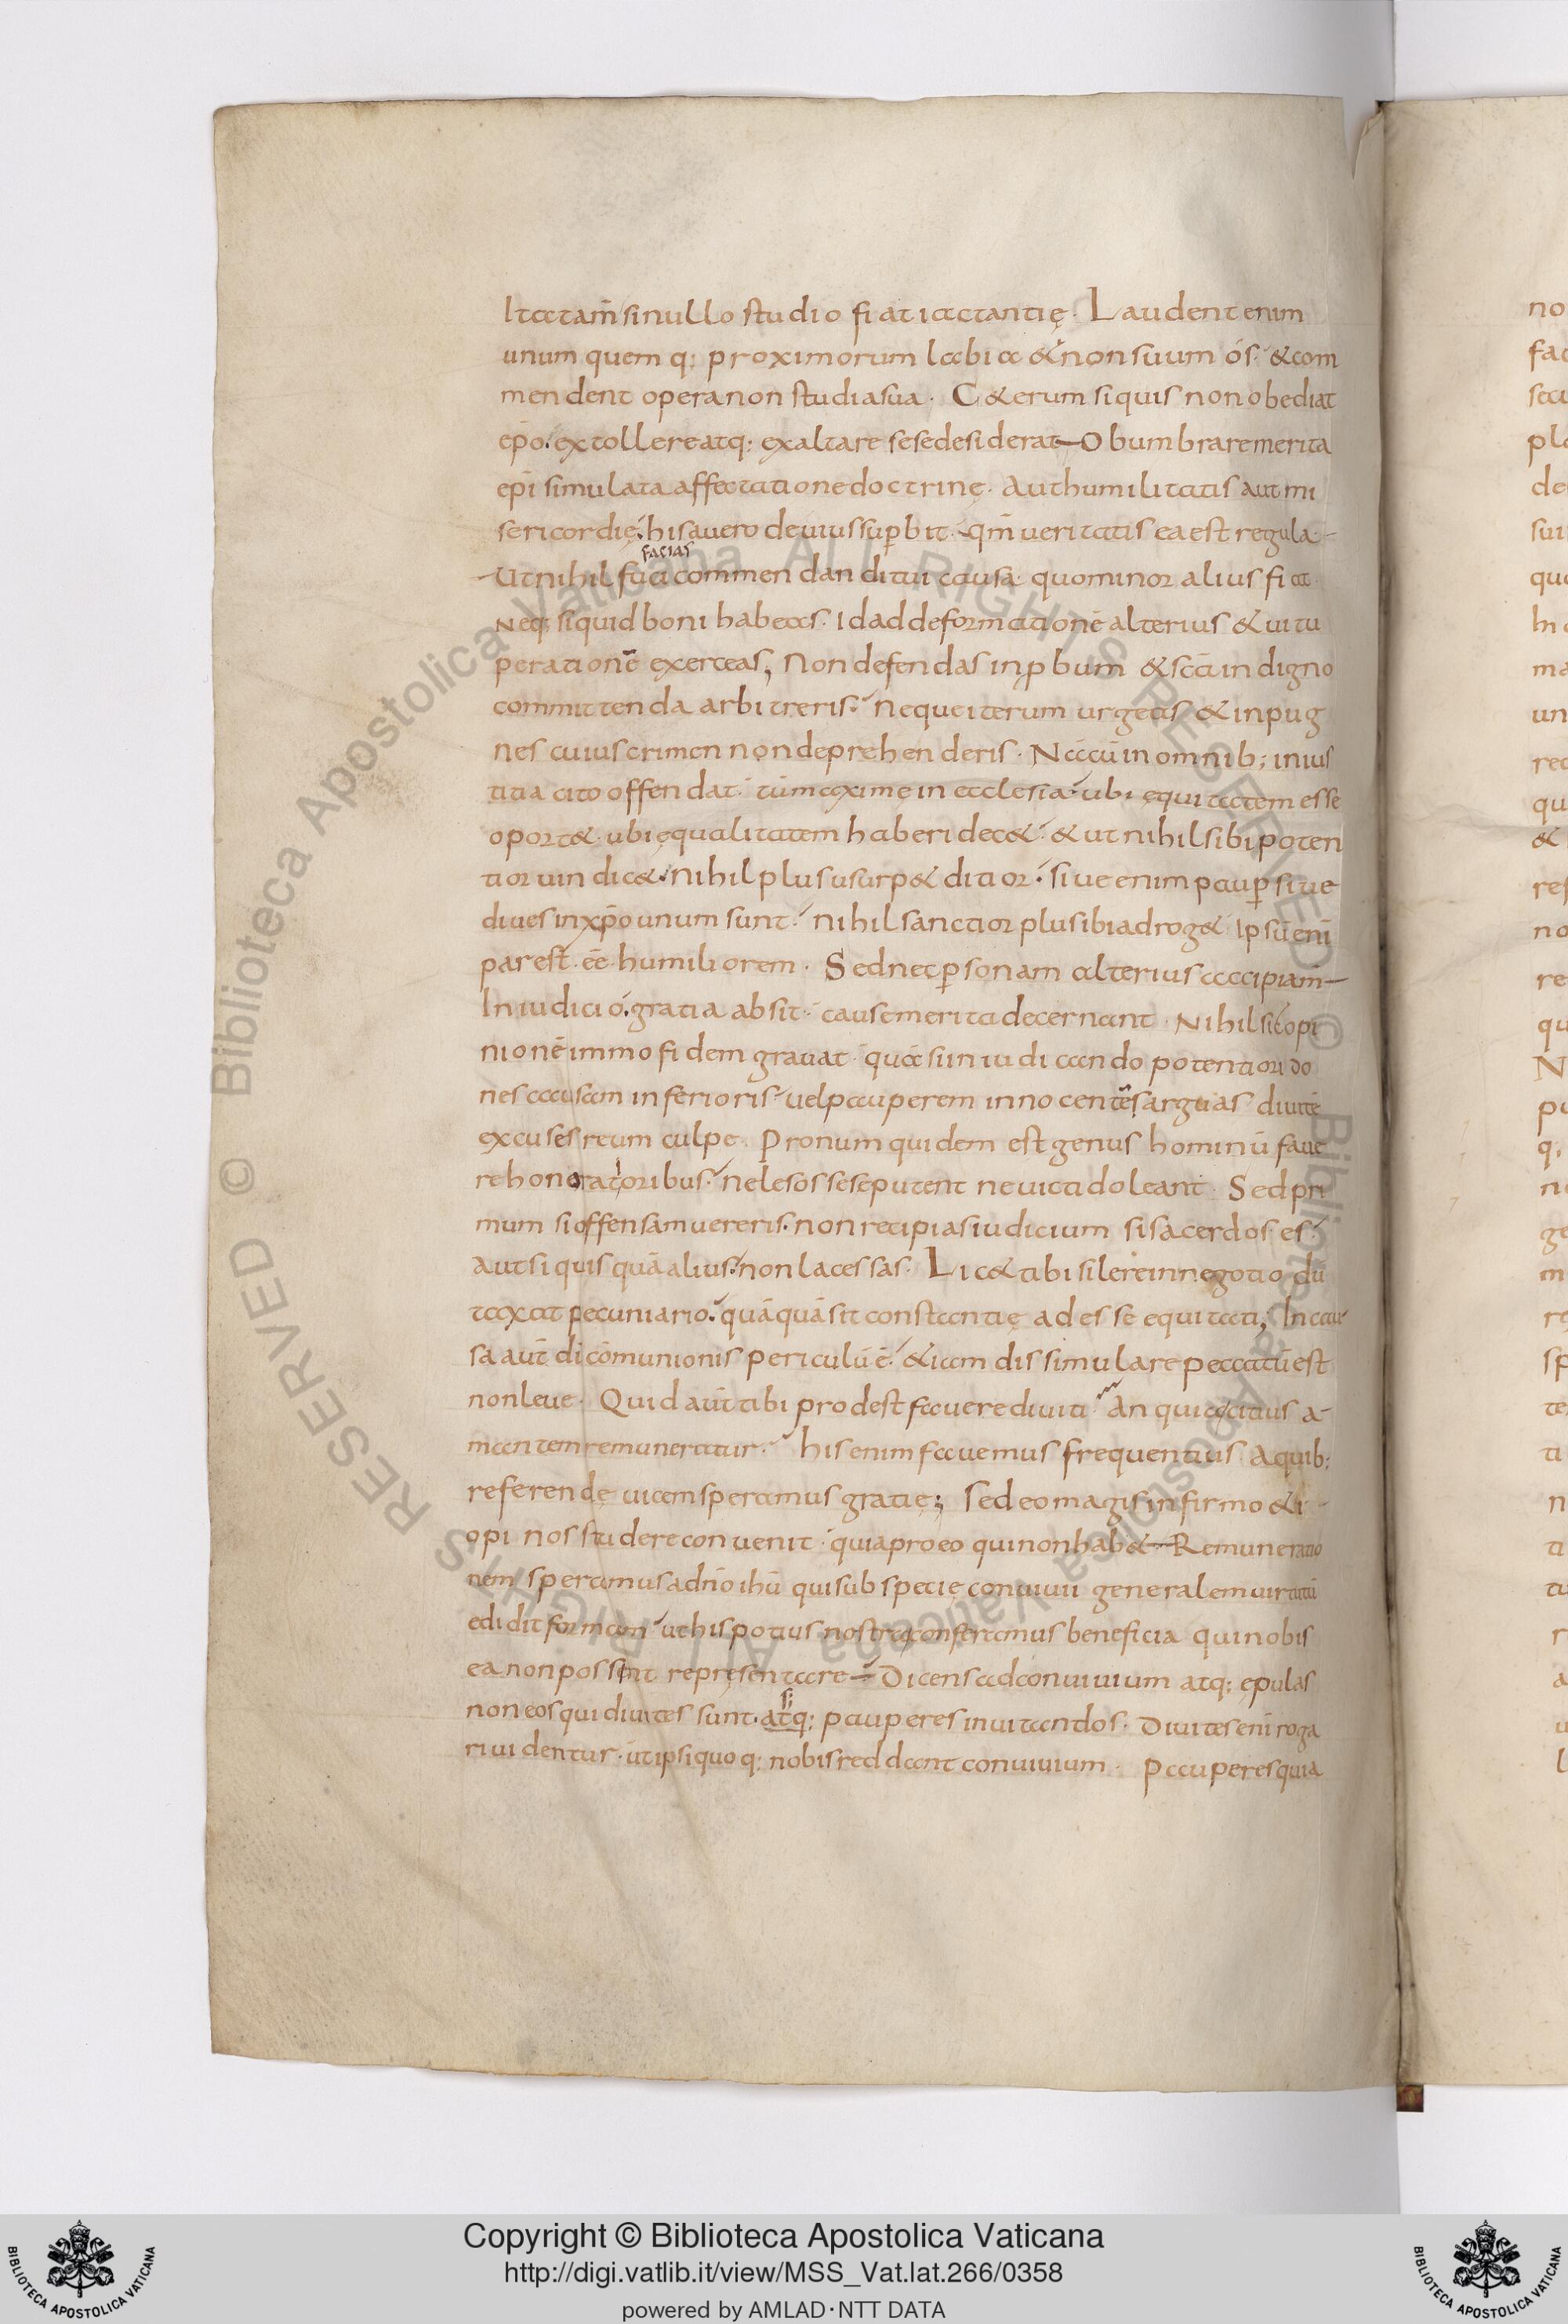 Ita tam̄ si nullo studio fiat iactantię. Laudent enim
unum quemq; proximorum labia & non suum ós. & com
mendent opera non studia sua. C&erum si quis non obediat
ep̄o. extollere atq; exaltare sese desiderat Obumbrare merita
ep̄i simulata affectatione doctrinę. Aut humilitatis aut mi
sericordię. his a uero deuius sup̱bit. qm̄ ueritatis ea est regula
facias
Ut nihil faci commendandi tui causa quo minor alius fiat
Neq; si quid boni habeas. Id ad deformationē alterius & uitu
perationē exerceas, Non defendas inp̱bum & sc̄a indigno
committenda arbitreris. Neque iterum urgeas & inpug
nes cuius crimen non deprehenderis. Nā cū in omnib; inius
titia cito offendat. tū maxime in ecclesia. ubi ęquitatem esse
oport&. ubi ęqualitatem haberi dec&. & ut nihil sibi poten
tior uindic&. nihil plus usurp& ditior. siue enim paup̱ siue
diues in xp̄o unum sunt. Nihil sanctior plus sibi adrog& Ipsū enī
par est. eē humiliorem. Sed nec p̱sonam alterius accipiam
In iudicio gratia absit. causę merita decernant. Nihil sic opi
nionē immo fidem grauat. quā si in iudicando potentiori do
nes causam inferioris. uel pauperem innocentēs arguas diuitē
excuses reum culpe. Pronum quidem est genus hominū faue
re honoratioribus. ne lesos sese putent ne uicti doleant. Sed pri
mum si offensam uereris. non recipias iudicium si sacerdos es.
Aut si quis quā alius. non lacessas. Lic& tibi silere in negotio dū
taxat pecuniario. quāquā sit constantię adesse equitati, In cau
sa aūt dī cōmunionis periculū ē. &iam dissimulare peccatū est
non leue. Quid aūt tibi prodest fauere diuiti. An quia citius a
mantem remuneratur. his enim fauemus frequentius A quib;
referendę uicem speramus gratię; Sed eo magis infirmo & i
opi nos studere conuenit. quia pro eo qui non hab& Remuneratio
nem speramus a dn̄o ihū qui sub specię conuiuii generalem uirtutū
edidit formam ut his potius nostra conferamus beneficia qui nobis
ea non possint repręsentare Dicens ad conuiuium atq; ępulas
non eos qui diuites sunt. atq; pauperes inuitandos. Diuites enī roga
ri uidentur. ut ipsi quoq; nobis reddant conuiuium. Pauperes quia
Copyright © Biblioteca Apostolica Vaticana
http://digi.vatlib.it/view/MSS_Vat.lat.266/0358
powered by AMLAD·NTT DATA
BIBLIOTECA APOSTOLICA VATICANA
BIBLIOTECA APOSTOLICA VATICANA